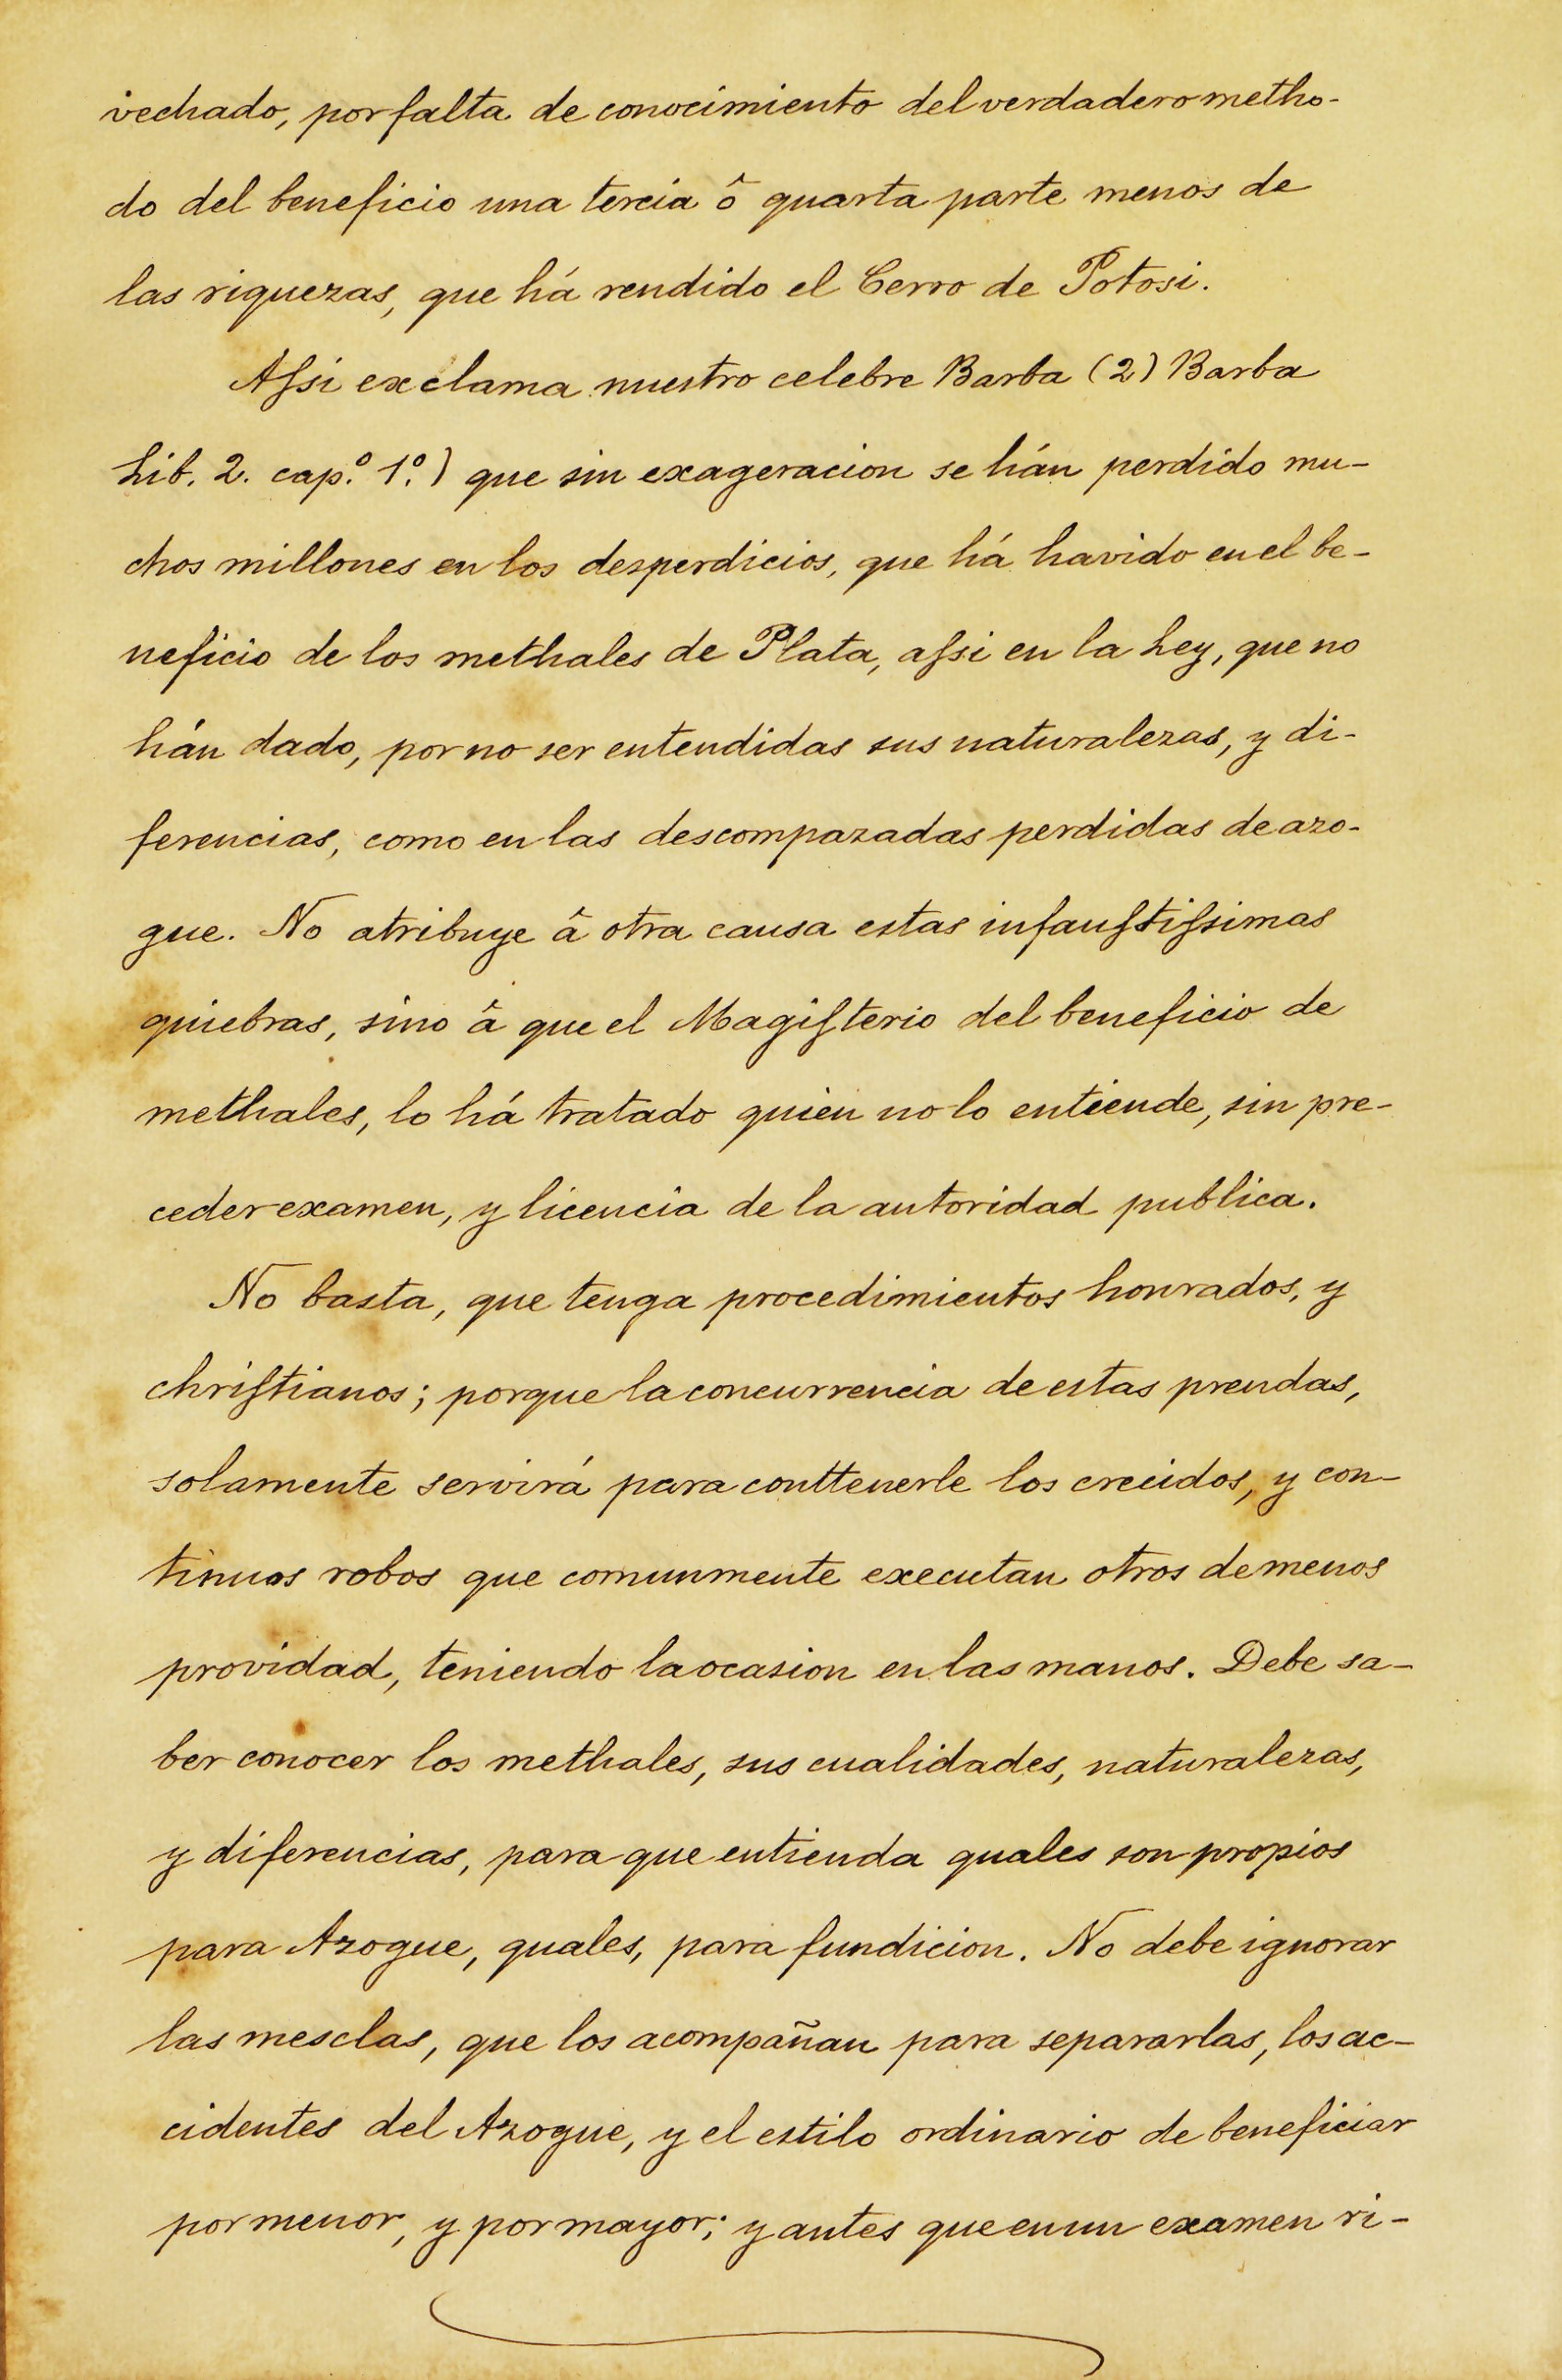 vechado, por falta de conocimiento del verdadero metho-
do del beneficio una tercia ô quarta parte menos de
las riquezas, que há rendido el Cerro de Potosi.
Assi exclama nuestro celebre Barba (2) Barba
Lib. 2. cap.º 1.º) que sin exageracion se hán perdido mu-
chos millones en los desperdicios, que há havido en el be-
neficio de los methales de Plata, assi en la Ley, que no
hán dado, por no ser entendidas sus naturalezas, y di-
ferencias, como en las descompazadas perdidas de azo-
gue. No atribuye â otra causa estas infaustissimas
quiebras, sino â que el Magisterio del beneficio de
methales, lo há tratado quien no lo entiende, sin pre-
ceder examen, y licencia de la autoridad publica.
No basta, que tenga procedimientos honrados, y
christianos; porque la concurrencia de estas prendas,
solamente servirá para conttenerle los crecidos, y con-
tinuos robos que comunmente executan otros de menos
providad, teniendo la ocasion en las manos. Debe sa-
ber conocer los methales, sus cualidades, naturalezas,
y diferencias, para que entienda quales son propios
para Azogue, quales, para fundicion. No debe ignorar
las mesclas, que los acompañan para separarlas, los ac-
cidentes del Azogue, y el estilo ordinario de beneficiar
por menor, y por mayor; y antes que en un examen ri-